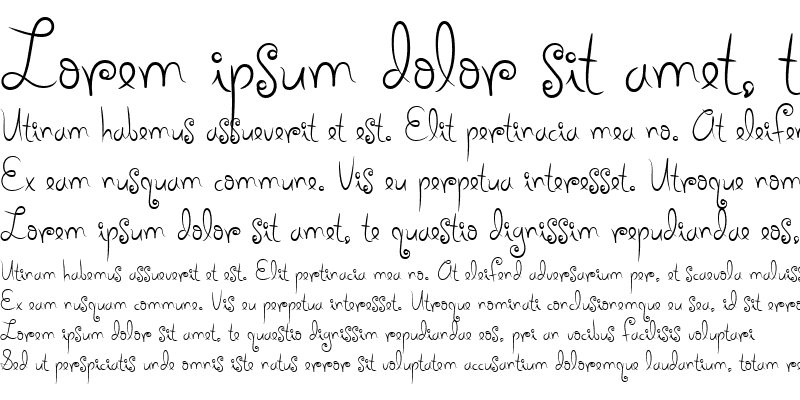 Lorem ipsum dolor sit amet, t
Utinam habemus assueverit et est. Elit pertinacia mea no. At eleifer
Ex eam nusquam commune. Vis eu perpetua interesset. Utroque nom
Lorem ipsum dolor sit amet, te quaestio dignissim repudiandae eos,
Utinam habemus assueverit et est. Elit pertinacia mea no. At eleifend adversarium per, et scaevola maluiss
Ex eam nusquam commune. Vis eu perpetua interesset. Utroque nominati conclusionemque eu sea, id sit error
Lorem ipsum dolor sit amet, te quaestio dignissim repudiandae eos, pri an vocibus facilisis voluptari
Sed ut perspiciatis unde omnis iste natus error sit voluptatem accusantium doloremque laudantium, totam re